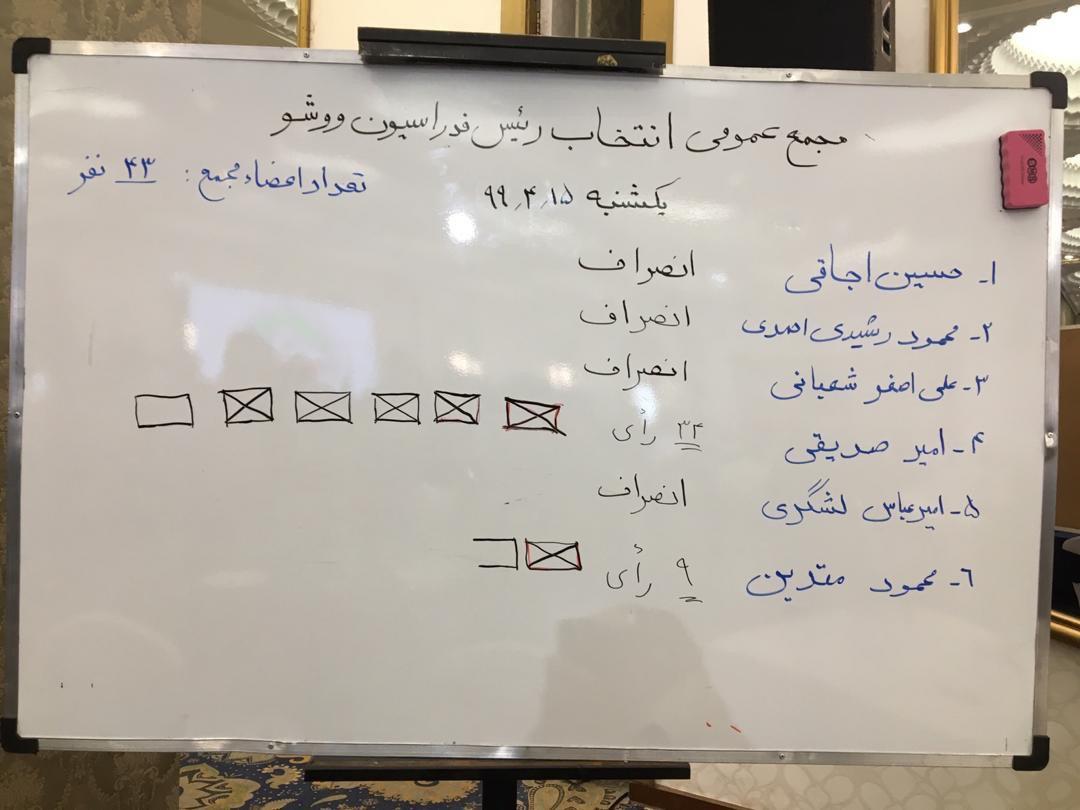 مجمع عمومی انتخاب رئیس فدراسیون ووشو
یکشنبه ۱۵/۴/۹۹
تعداد اعضاء مجمع: ۴۳ نفر
۱- حسین اجاقی انصراف
۲- محمود رشیدی احمدی انصراف
۳- علی اصغر شعبانی انصراف
۴- امیر صدیقی ۳۴ رأی
۵- امیرعباس لشگری انصراف
۶- محمود متدین ۹ رأی